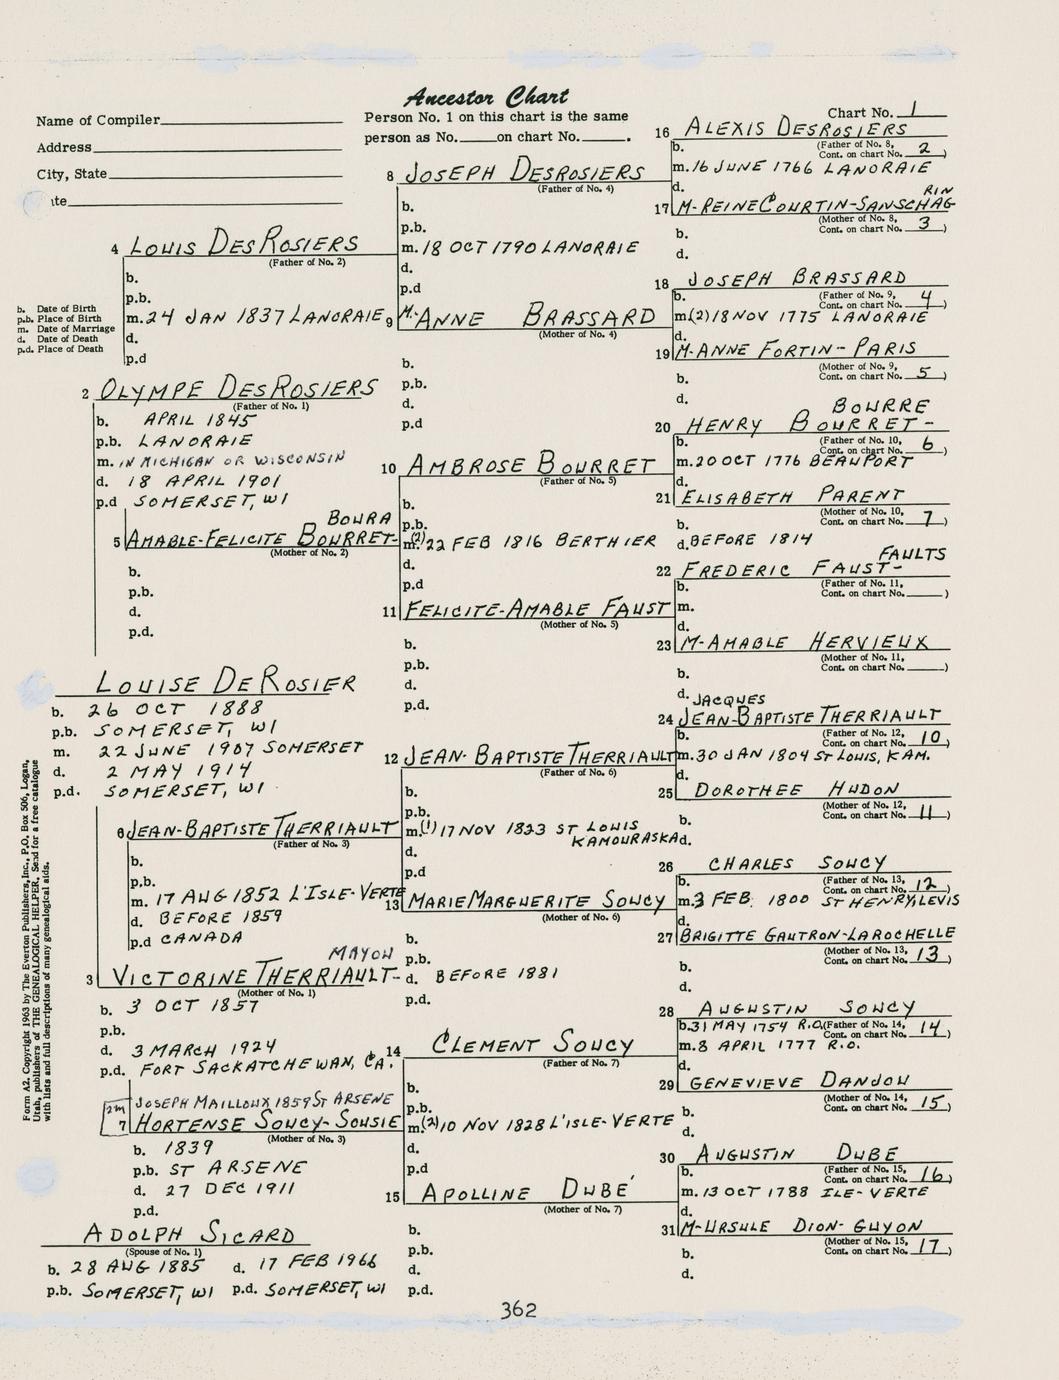 Ancestor Chart
Name of Compiler
Address
City, State
Person No. 1 on this chart is the same
person as No. on chart No. .
Chart No. 1
b. Date of Birth
p.b. Place of Birth
m. Date of Marriage
d. Date of Death
p.d. Place of Death
LOUISE DEROSIER
b. 26 OCT 1888
p.b. SOMERSET, WI
m. 22 JUNE 1907 SOMERSET
d. 2 MAY 1914
p.d. SOMERSET, WI
2 OLYMPE DESROSIERS
(Father of No. 1)
b. APRIL 1845
p.b. LANORAIE
m. IN MICHIGAN OR WISCONSIN
d. 18 APRIL 1901
p.d SOMERSET, WI
MAYOU
3 VICTORINE THERRIAULT-
(Mother of No. 1)
b. 3 OCT 1857
p.b.
d. 3 MARCH 1924
p.d. FORT SACKATCHEWAN, CA.
4 LOUIS DESROSIERS
(Father of No. 2)
b.
p.b.
m. 24 JAN 1837 LANORAIE
d.
p.d
BOURA
5 AMABLE-FELICITE BOURRET-
(Mother of No. 2)
b.
p.b.
d.
p.d.
6 JEAN-BAPTISTE THERRIAULT
(Father of No. 3)
b.
p.b.
m. 17 AUG 1852 L'ISLE-VERTE
d. BEFORE 1859
p.d CANADA
2m JOSEPH MAILLOUX 1859 ST ARSENE
7 HORTENSE SOUCY-SOUSIE
(Mother of No. 3)
b. 1839
p.b. ST ARSENE
d. 27 DEC 1911
p.d.
ADOLPH SICARD
(Spouse of No. 1)
b. 28 AUG 1885 d. 17 FEB 1966
p.b. SOMERSET, WI p.d. SOMERSET, WI
8 JOSEPH DESROSIERS
(Father of No. 4)
b.
p.b.
m. 18 OCT 1790 LANORAIE
d.
p.d
9 M-ANNE BRASSARD
(Mother of No. 4)
b.
p.b.
d.
p.d
10 AMBROSE BOURRET
(Father of No. 5)
b.
p.b.
m. (2) 22 FEB 1816 BERTHIER
d.
p.d
11 FELICITE-AMABLE FAUST
(Mother of No. 5)
b.
p.b.
d.
p.d.
12 JEAN-BAPTISTE THERRIAULT
(Father of No. 6)
b.
p.b.
m. (1) 17 NOV 1823 ST LOUIS
KAMOURASKA
d.
p.d
13 MARIE MARGUERITE SOUCY
(Mother of No. 6)
b.
p.b.
d. BEFORE 1881
p.d.
14 CLEMENT SOUCY
(Father of No. 7)
b.
p.b.
m. (2) 10 NOV 1828 L'ISLE-VERTE
d.
p.d
15 APOLLINE DUBE'
(Mother of No. 7)
b.
p.b.
d.
p.d.
16 ALEXIS DESROSIERS
b. (Father of No. 8,
Cont. on chart No. 2)
m. 16 JUNE 1766 LANORAIE
d.
RIN
17 M-REINE COURTIN-SANSCHAG-
(Mother of No. 8,
b. Cont. on chart No. 3)
d.
18 JOSEPH BRASSARD
b. (Father of No. 9,
Cont. on chart No. 4)
m. (2) 18 NOV 1775 LANORAIE
d.
19 M-ANNE FORTIN-PARIS
(Mother of No. 9,
b. Cont. on chart No. 5)
d.
BOURRE
20 HENRY BOURRET-
b. (Father of No. 10,
Cont. on chart No. 6)
m. 20 OCT 1776 BEAUPORT
d.
21 ELISABETH PARENT
(Mother of No. 10,
b. Cont. on chart No. 7)
d. BEFORE 1814
FAULTS
22 FREDERIC FAUST-
b. (Father of No. 11,
Cont. on chart No. )
m.
d.
23 M-AMABLE HERVIEUX
(Mother of No. 11,
b. Cont. on chart No. )
d.
JACQUES
24 JEAN-BAPTISTE THERRIAULT
b. (Father of No. 12,
Cont. on chart No. 10)
m. 30 JAN 1804 ST LOUIS, KAM.
d.
25 DOROTHEE HUDON
(Mother of No. 12,
b. Cont. on chart No. 11)
d.
26 CHARLES SOUCY
b. (Father of No. 13,
Cont. on chart No. 12)
m. 3 FEB. 1800 ST HENRY, LEVIS
d.
27 BRIGITTE GAUTRON-LAROCHELLE
(Mother of No. 13,
b. Cont. on chart No. 13)
d.
28 AUGUSTIN SOUCY
b. 31 MAY 1754 R.O. (Father of No. 14,
Cont. on chart No. 14)
m. 8 APRIL 1777 R.O.
d.
29 GENEVIEVE DANJOU
(Mother of No. 14,
b. Cont. on chart No. 15)
d.
30 AUGUSTIN DUBE
b. (Father of No. 15,
Cont. on chart No. 16)
m. 13 OCT 1788 ILE-VERTE
d.
31 M-URSULE DION-GUYON
(Mother of No. 15,
b. Cont. on chart No. 17)
d.
Form A2. Copyright 1963 by The Everton Publishers, Inc., P.O. Box 506, Logan,
Utah, publishers of THE GENEALOGICAL HELPER. Send for a free catalogue
with lists and full descriptions of many genealogical aids.
362